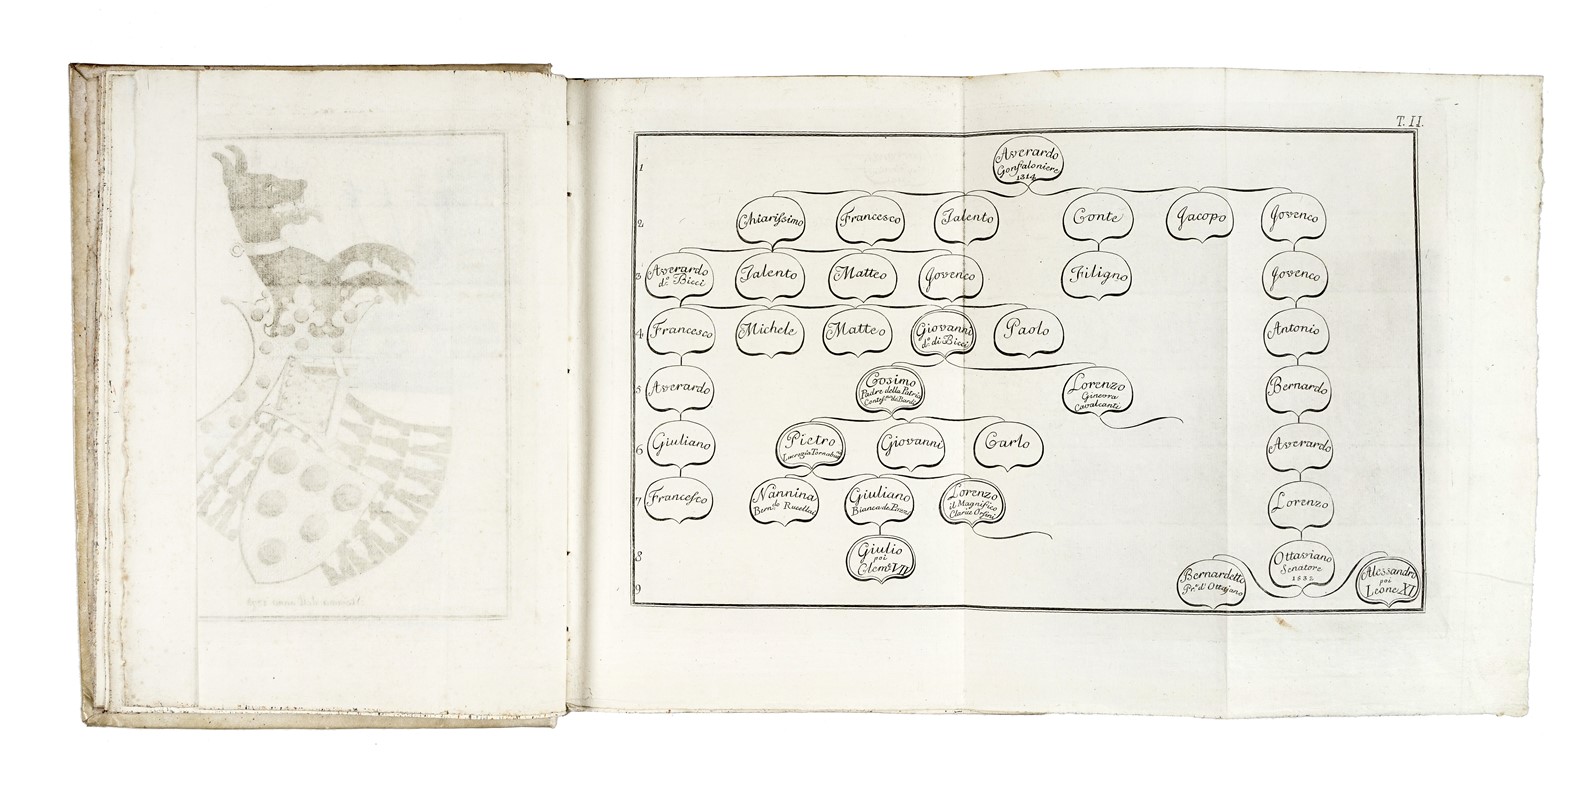 T. II.
1
Averardo
Gonfaloniere
1314
2
Chiarissimo
Francesco
Talento
Conte
Jacopo
Jovenco
3
Averardo
do. Bicci
Talento
Matteo
Jovenco
Filigno
Jovenco
4
Francesco
Michele
Matteo
Giovanni
do. di Bicci
Paolo
Antonio
5
Averardo
Cosimo
Padre della Patria
Contess.na de Bardi
Lorenzo
Ginevra
Cavalcanti
Bernardo
6
Giuliano
Pietro
Lucrezia Tornabuo
Giovanni
Carlo
Averardo
7
Francesco
Nannina
Bern.do Rucellai
Giuliano
Bianca de Pazzi
Lorenzo
il Magnifico
Clarice Orsini
Lorenzo
8
Giulio
poi
Clem.e VII
Ottaviano
Senatore
1532
9
Bernardetto
Pr.e d'Ottajano
Alessandro
poi
Leone XI